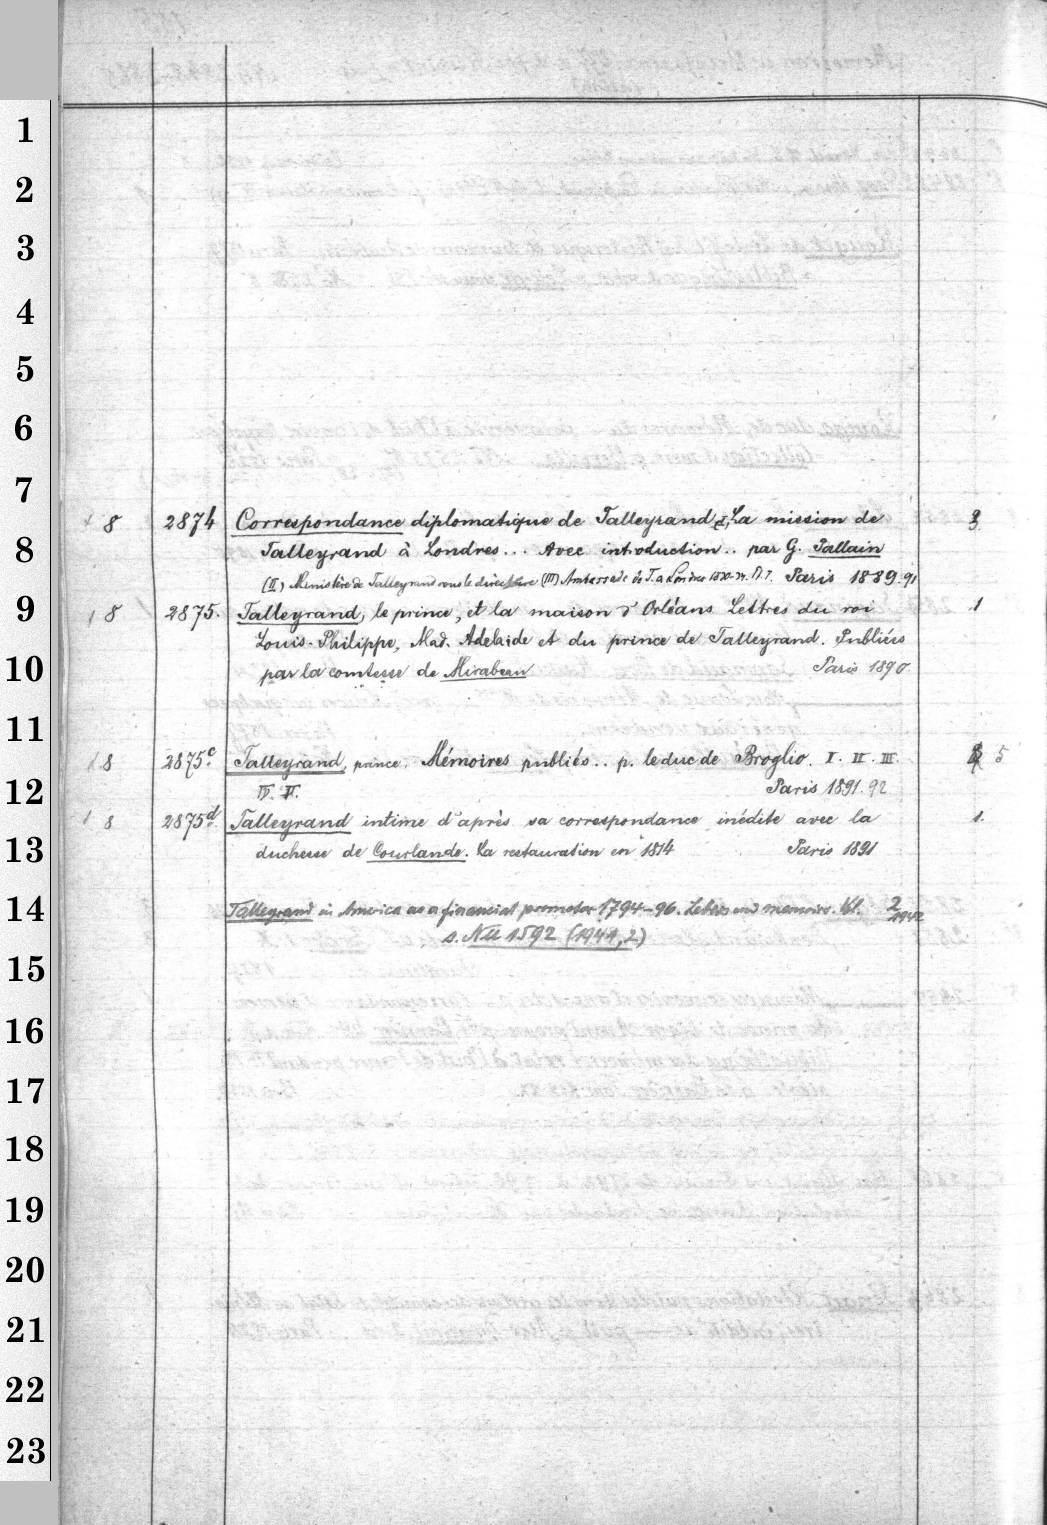 1
2
3
4
5
6
7
8 2874 Correspondance diplomatique de Talleyrand I, La mission de 3
8
Talleyrand à Londres... Avec introduction.. par G. Pallain
(II) Ministère de Talleyrand sous le directoire (III) Ambassade de T. a Londres 1830-34. Paris 1889.91
9
1 8 2875. Talleyrand, le prince, et la maison d'Orléans Lettres du roi 1
Louis-Philippe, Mad. Adelaide et du prince de Talleyrand. Publiées
10
par la comtesse de Mirabeau Paris 1890
11
1 8 2875c Talleyrand, prince. Mémoires publiés.. p. le duc de Broglio. I. II. III. 5
12
IV. V. Paris 1891.92
1 8 2875d. Talleyrand intime d'après sa correspondance inédite avec la 1.
13
duchesse de Courlande. La restauration en 1814 Paris 1891
14
Talleyrand in America as a financial promoter 1794-96. Letters and memoirs. Vol. 2
1942
s. NU 1592 (1941,2)
15
16
17
18
19
20
21
22
23